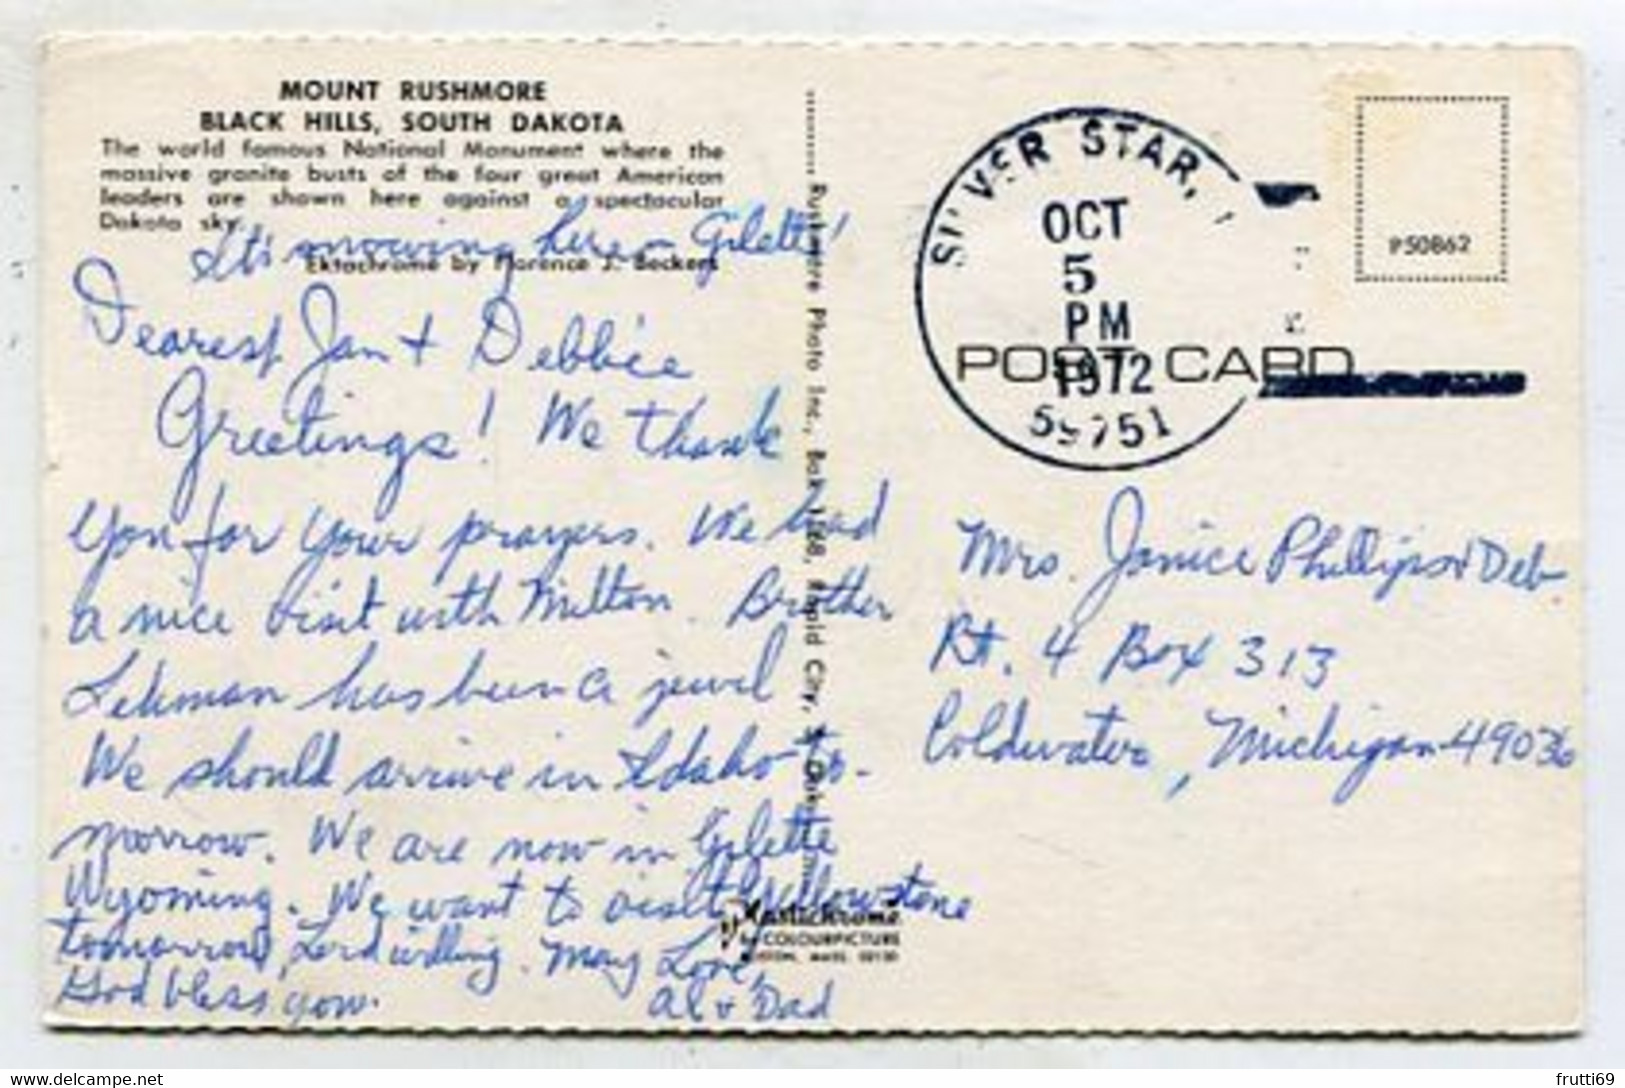 MOUNT RUSHMORE
BLACK HILLS, SOUTH DAKOTA
The world famous National Monument where the
massive granite busts of the four great American
leaders are shown here against a spectacular
Dakota sky.
Ektachrome by Florence J. Beckers
It's snowing here - Gilette!
Dearest Jan + Debbie
Greetings! We thank
you for your prayers. We had
a nice visit with Milton. Brother
Lehman has been a jewel
We should arrive in Idaho to-
morrow. We are now in Gilette
Wyoming. We want to visit Yellowstone
tomorrow, Lord willing. May
God bless you.
Love,
Al + Dad
Rushmore Photo Inc., Box Rapid City, S. Dak.
Plastichrome
by COLOURPICTURE
BOSTON, MASS. 02130
SILVER STAR,
OCT
5
PM
1972
59751
POST CARD
P50862
Mrs. Janice Phillips & Deb
Rt. 4 Box 313
Coldwater, Michigan 49036
frutti69
delcampe.net